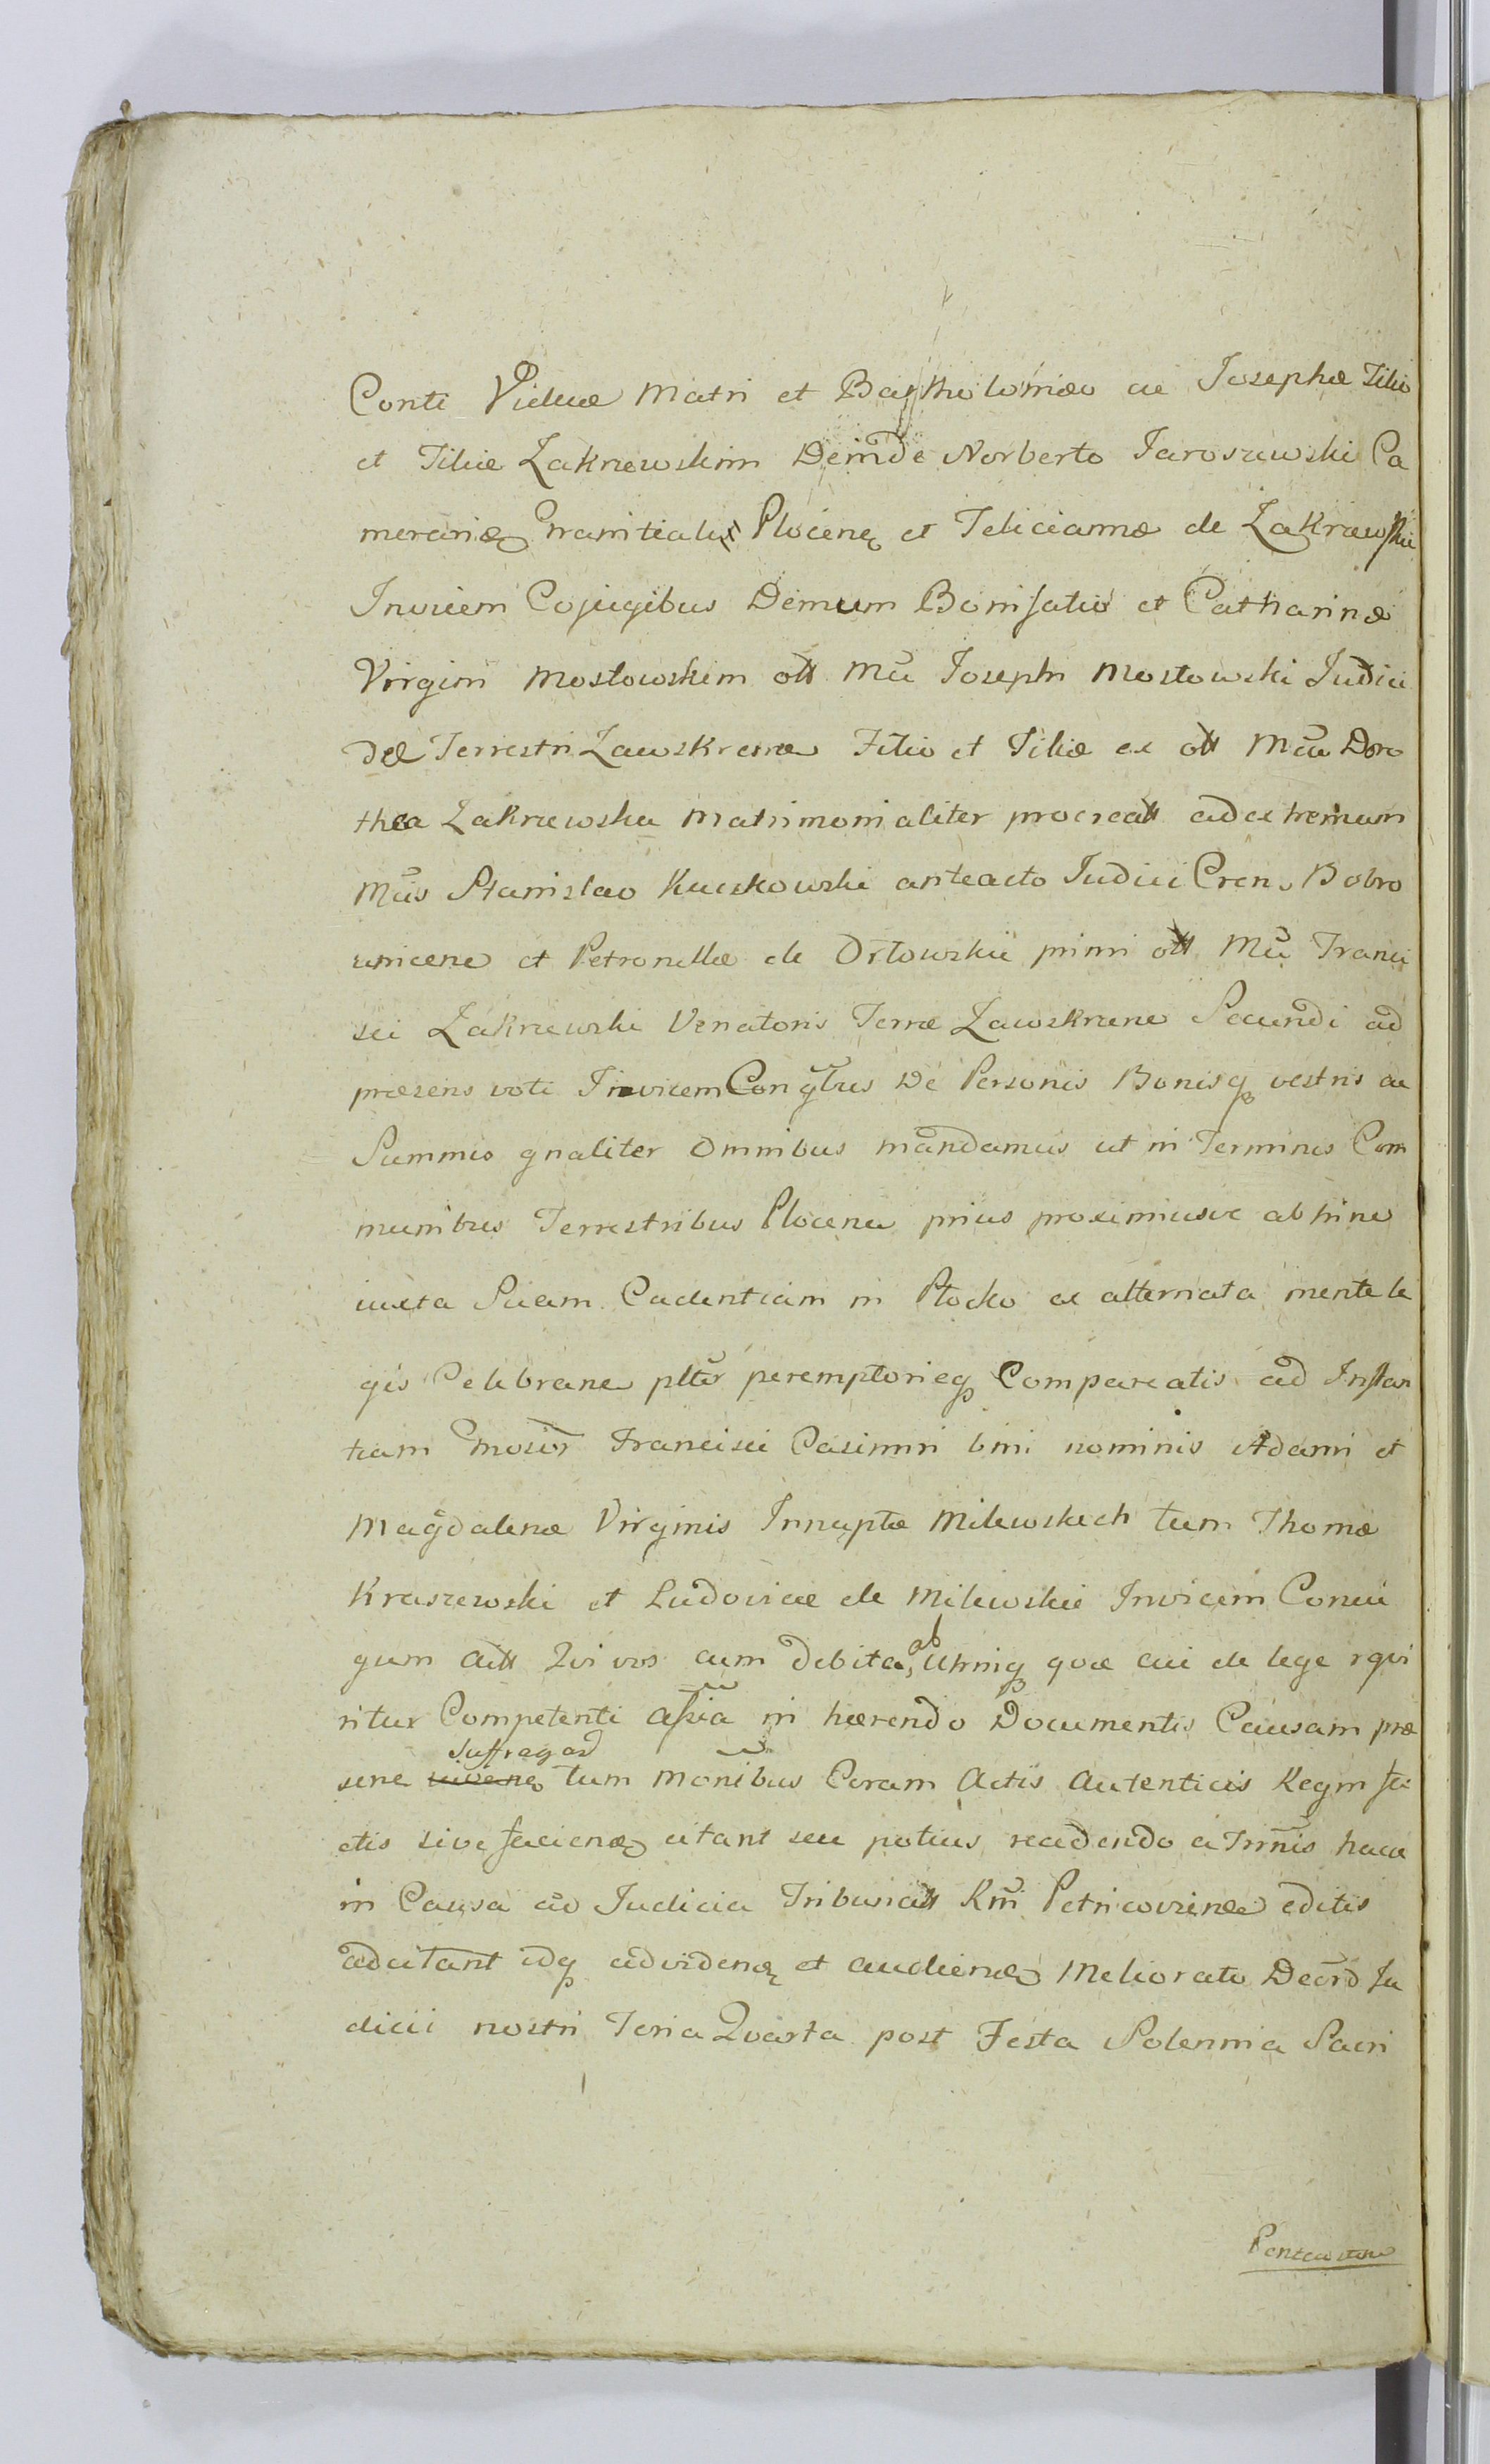 Conti Viduæ Matri et Bartholomæo ac Josephæ Filio
et Filiæ Zakrzewskim Deinde Norberto Jaroszewski Ca
merario Granitiali Plocen et Felicianna de Zakrzewskie
Invicem Cojugibus Demum Bonifatio et Catharinæ
Virgini Mostowskim olt Mci Joseph Mostowski Judici
del Terrestri Zawskrene Filio et Filiæ ex olt Mca Doro
thea Zakrzewska Matrimonialiter procreatt ad extremum
Mcis Stanislao Kuczkowski anteacto Judici Cren Bobro
wnicene et Petronellæ de Orłowskie primi olt Mci Franci
sci Zakrzewski Venatoris Terræ Zawskrzene Secundi ad
præsens voti Invicem Congbus De Personis Bonisq vestris ac
Summis gnaliter Omnibus mandamus ut in Terminis Com
munibus Terrestribus Plocena prius proximiusve abhinc
iuxta Suam Cadentiam in Płocko ex alternata mente le
gis Celebrane pltr peremptorieq Compareatis ad Instan
tiam Gnosor Francisci Casimiri bini nominis Adami et
Magdalenæ Virginis Innuptæ Milewskich tum Thomæ
Kraszewski et Ludovicæ de Milewskie Invicem Coniu
gum Actt Qvi vos cum debita, ab Utrinq qvæ cui de lege rqvi
ritur Competenti assia in hærendo Documentis Causam præ
sene suffragad tum Monibus Coram Actis Autenticis Regni fa
ctis sive faciene citant seu potius reddendo a Trinis hacce
in Causa ad Judicia Tribunatt Rni Petricovien editis
adcitant idq ad videne et audiene Meliorato Decrto Ju
dicii nostri Feria Qvarta post Festa Solennia Sacri
Pentecosten